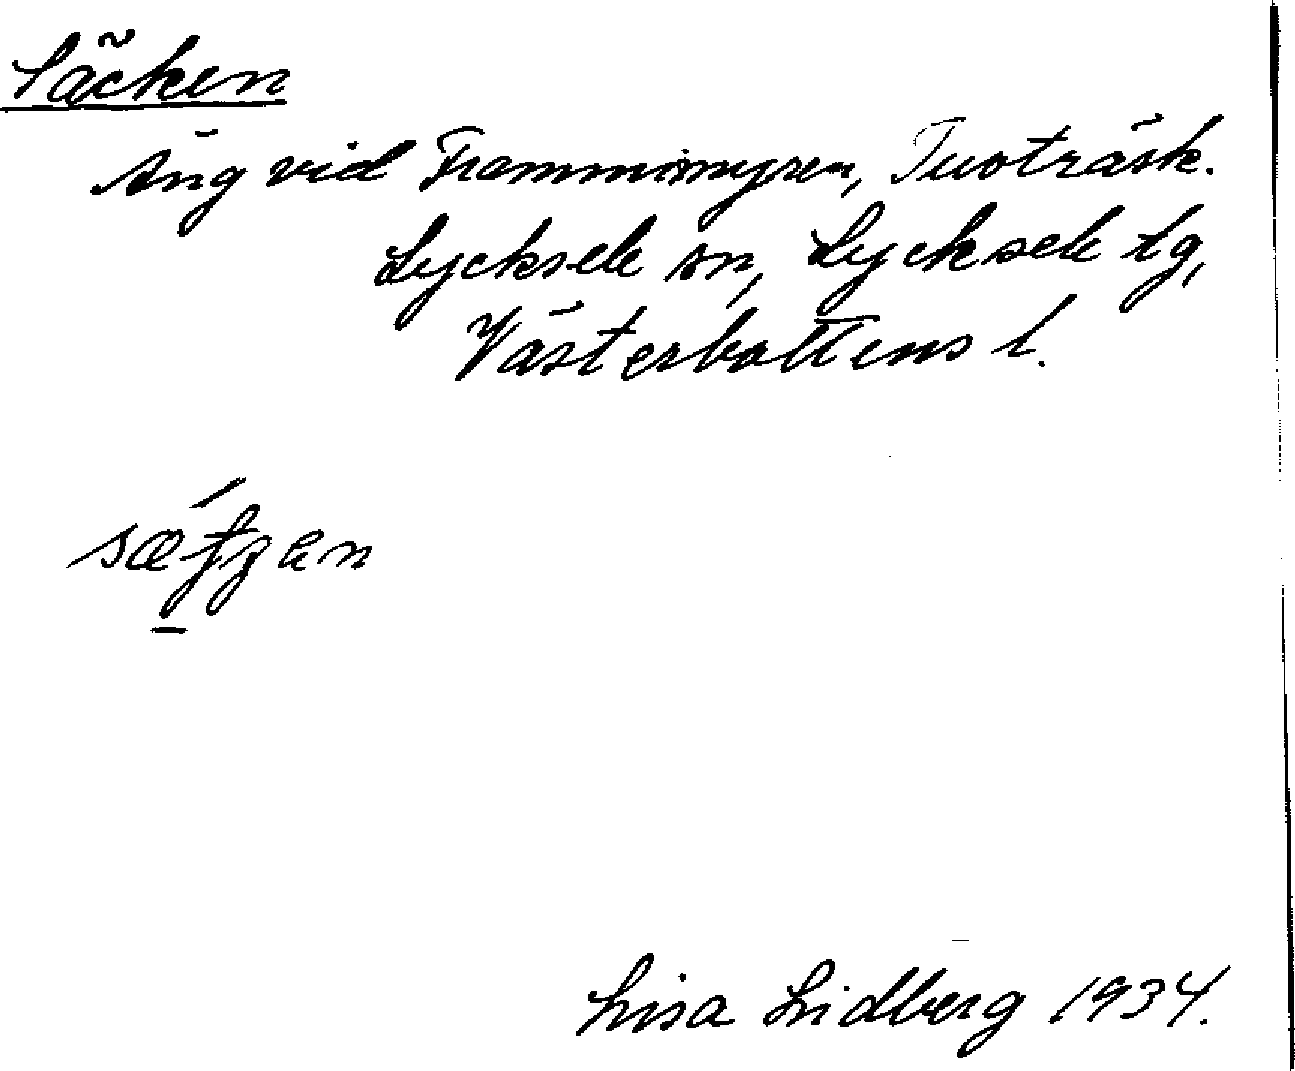 Säcken
Äng vid Frammimyren, Tuvträsk.
Lycksele sn, Lycksele tg,
Västerbottens l.
Lisa Lidberg 1934.